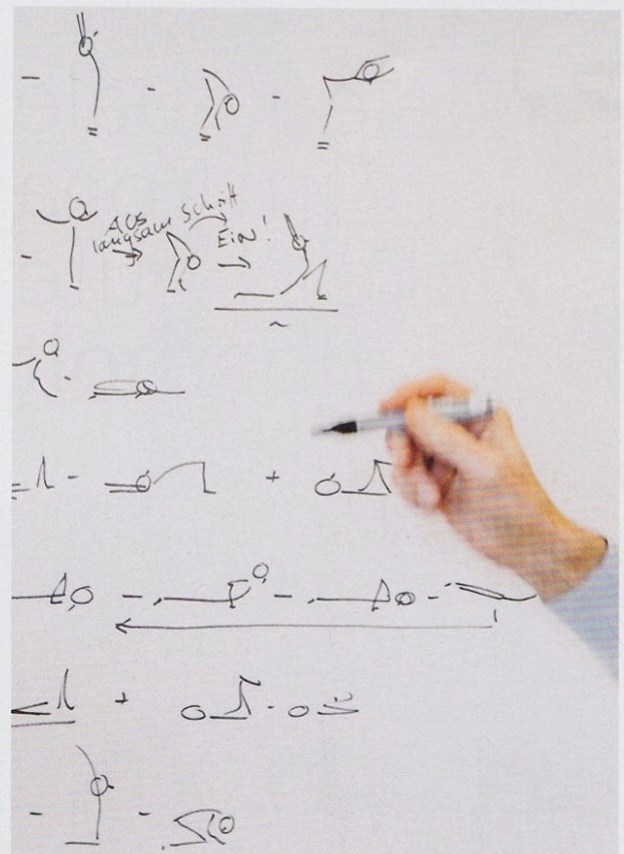 AUS
langsam Schritt
EiN!